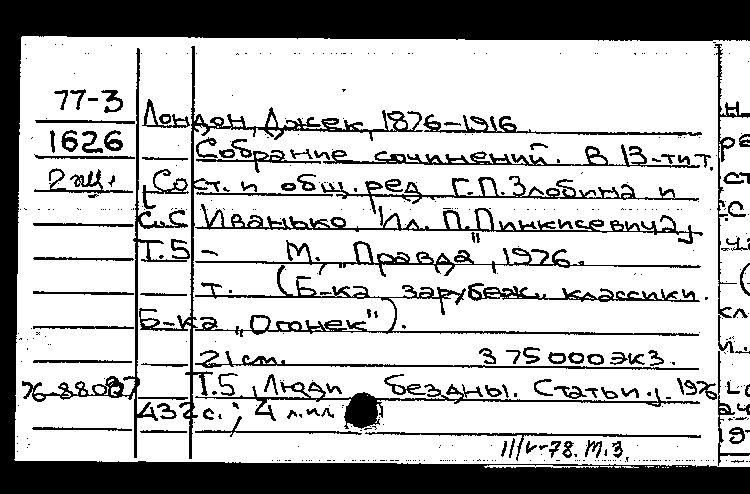 77-3
Лондон, Джек, 1876-1916
1626
Собрание сочинений. В 13-ти т.
2 экз.
[Сост. и общ. ред. Г.П. Злобина и
С.С. Иванько. Ил. П. Пинкисевича]
Т.5 - М., "Правда", 1976.
т. (Б-ка зарубеж. классики.
Б-ка "Огонек").
21 см. 375000 экз.
76-88087 Т.5, [Люди бездны. Статьи.]. 1976
432 с.; 4 л. ил.